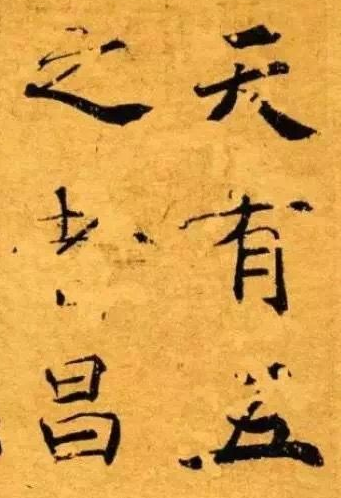 天有五
之者昌